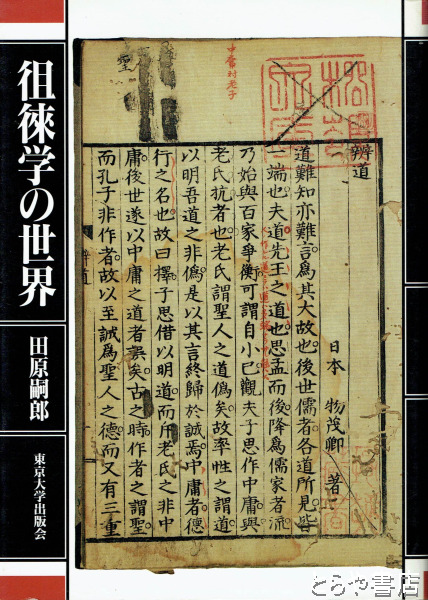 徂徠学の世界
田原嗣郎
東京大学出版会
辨道
日本 物茂卿 著
道難知亦難言為其大故也後世儒者各道所見皆
一端也夫道先王之道也思孟而後降為儒家者流
乃始與百家爭衡可謂自小已觀夫子思作中庸與
老氏抗者也老氏謂聖人之道偽矣故率性之謂道
以明吾道之非偽是以其言終歸於誠焉中庸者德
行之名也故曰擇子思借以明道而斥老氏之非中
庸後世遂以中庸之道者誤矣古之時作者之謂聖
而孔子非作者故以至誠為聖人之德而又有三重
辨道
とらや書店